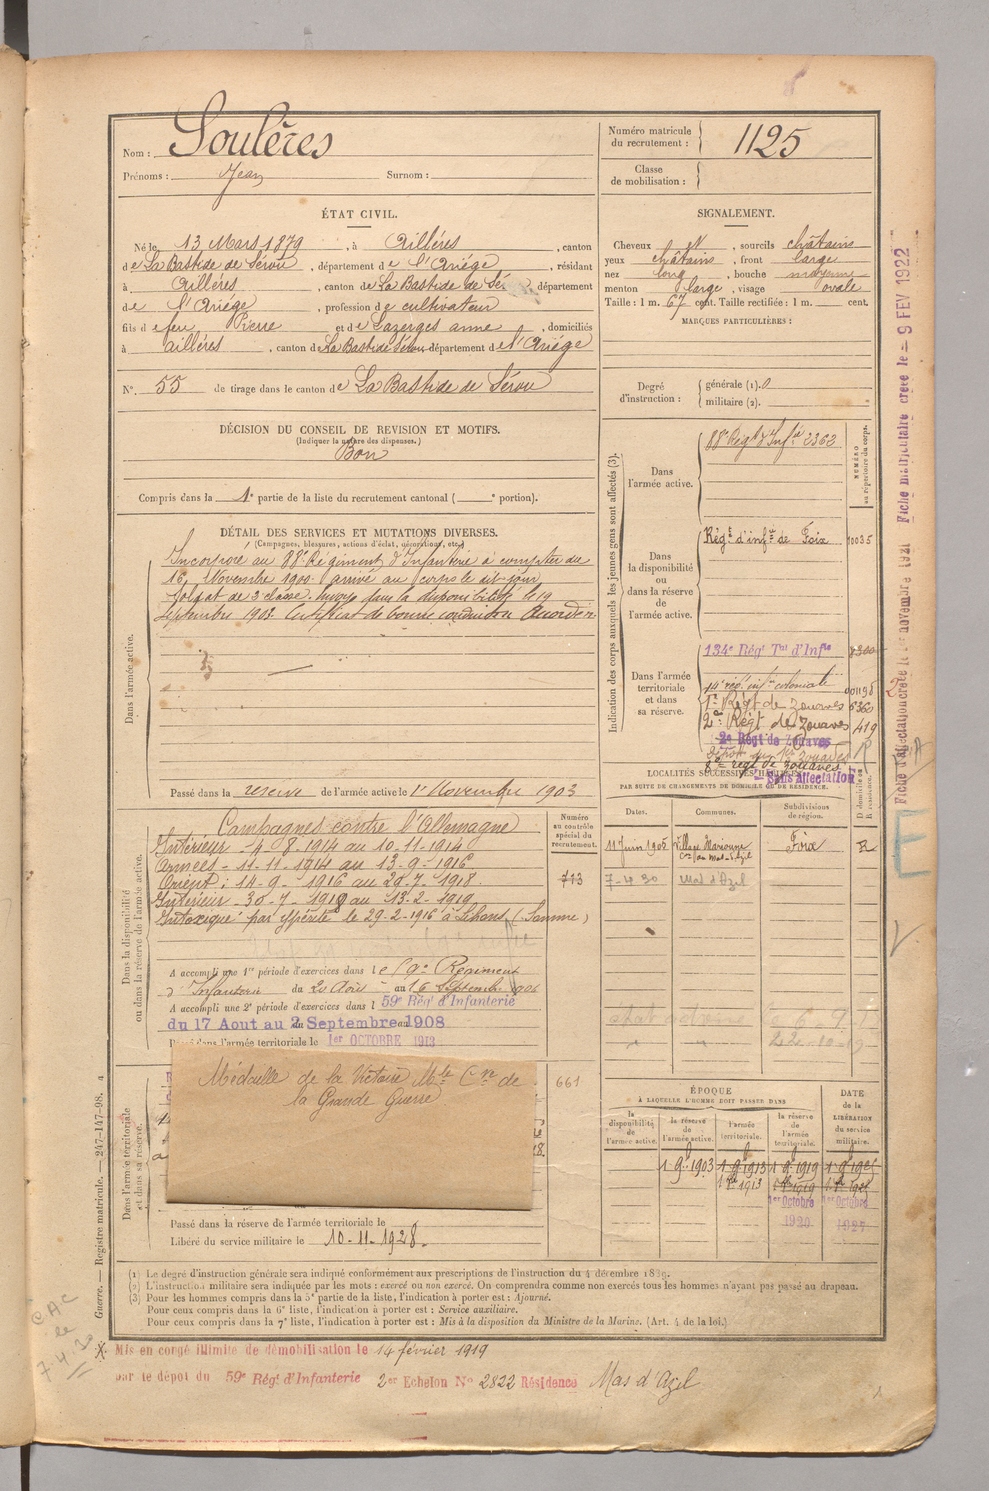 Nom : Soulères
Prénoms : Jean Surnom :
Numéro matricule du recrutement : 1125
Classe de mobilisation :
ÉTAT CIVIL.
Né le 13 Mars 1879, à Aillères, canton
de La Bastide de Sérou, département de l'Ariége, résidant
à Aillères, canton de La Bastide de Sér département
de l'Ariége, profession de cultivateur
fils de feu Pierre et de Lazerges anne, domiciliés
à aillères, canton de La Bastide Sérou département de l'Ariége
N°. 55 de tirage dans le canton de La Bastide de Sérou
SIGNALEMENT.
Cheveux et, sourcils châtains
yeux châtains, front large
nez long, bouche moyenne
menton large, visage ovale
Taille : 1 m. 67 cent. Taille rectifiée : 1 m. cent.
MARQUES PARTICULIÈRES :
Degré d'instruction : générale (1). 0
militaire (2).
DÉCISION DU CONSEIL DE REVISION ET MOTIFS.
(Indiquer la nature des dispenses.)
Bon
Compris dans la 1e partie de la liste du recrutement cantonal ( e portion).
DÉTAIL DES SERVICES ET MUTATIONS DIVERSES.
(Campagnes, blessures, actions d'éclat, décorations, etc.)
Dans l'armée active.
Incorporé au 88e Régiment d'Infanterie à compter du
16 Novembre 1900 arrivé au corps le dit jour
Soldat de 2e classe. Envoyé dans la disponibilité le 19
Septembre 1903. Certificat de bonne conduite Accordé
Passé dans la réserve de l'armée active le 1er Novembre 1903
Indication des corps auxquels les jeunes gens sont affectés (3).
NUMÉRO au répertoire du corps.
Dans l'armée active.
88e Régt d'Infie 2362
Dans la disponibilité ou dans la réserve de l'armée active.
Régt d'infie de Foix 10035
Dans l'armée territoriale et dans sa réserve.
134e Régt Tal d'Infie 8300
14e rég. infie coloniale 001198
1er Régt de zouaves 6360
2e Régt de Zouaves 419
2e Régt de Zouaves
8e régt de zouaves
Sans affectation
Dans la disponibilité ou dans la réserve de l'armée active.
Campagnes contre l'Allemagne
Intérieur - 4-8-1914 au 10-11-1914
Armées - 11-11-1914 au 13-9-1916
Orient : 14-9-1916 au 29-7-1918.
Intérieur - 30-7-1918 au 13-2-1919
Intoxiqué par ypérite le 29-2-1916 à Lihons (Somme)
Numéro au contrôle spécial du recrutement.
713
A accompli une 1re période d'exercices dans le 59e Régiment
d'Infanterie du 20 Août au 16 Septembre 1906
A accompli une 2e période d'exercices dans l 59e Régt d'Infanterie
du 17 Aout au 2 Septembre 1908
Passé dans l'armée territoriale le 1er OCTOBRE 1913
Dans l'armée territoriale et dans sa réserve.
Médaille de la Victoire Mle Cve de
la Grande Guerre
661
Passé dans la réserve de l'armée territoriale le
Libéré du service militaire le 10-11-1928.
LOCALITÉS SUCCESSIVES HABITÉES
PAR SUITE DE CHANGEMENTS DE DOMICILE OU DE RÉSIDENCE.
Dates. Communes. Subdivisions de région. D domicile ou R résidence.
11 Juin 1905 Foix R
7-4-30 Mas d'Azil
22-10-19
ÉPOQUE
À LAQUELLE L'HOMME DOIT PASSER DANS
DATE de la LIBÉRATION du service militaire.
la disponibilité de l'armée active. la réserve de l'armée active. l'armée territoriale. la réserve de l'armée territoriale.
1 9b 1903 1 9b 1913 1 9b 1919 1 9b 1925
1er Octobre 1920
1er Octobre
(1) Le degré d'instruction générale sera indiqué conformément aux prescriptions de l'instruction du 4 décembre 1889.
(2) L'instruction militaire sera indiquée par les mots : exercé ou non exercé. On comprendra comme non exercés tous les hommes n'ayant pas passé au drapeau.
(3) Pour les hommes compris dans la 5e partie de la liste, l'indication à porter est : Ajourné.
Pour ceux compris dans la 6e liste, l'indication à porter est : Service auxiliaire.
Pour ceux compris dans la 7e liste, l'indication à porter est : Mis à la disposition du Ministre de la Marine. (Art. 4 de la loi.)
Mis en congé illimité de démobilisation le 14 février 1919
par le dépot du 59e Régt d'Infanterie 2er Echelon No 2822 Résidence Mas d'Azil
Guerre. — Registre matricule. — 247-147-98.
CAC
le
7.4.30
Fiche d'affectation créée le 1er novembre 1921 Fiche matriculaire créée le 9 FEV 1922